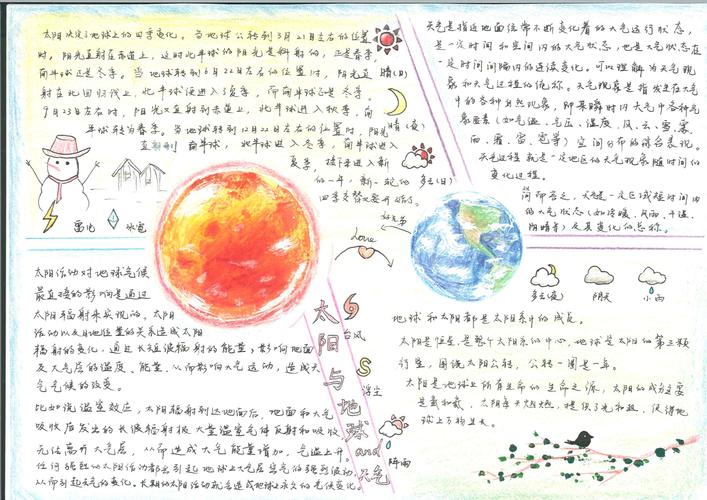 太阳决定了地球上的四季变化。当地球公转到3月21日左右的位置
时，阳光直射在赤道上，这时北半球的阳光是斜射的，正是春季，
南半球正是秋季。当地球转到6月22日左右的位置时，阳光直
射在北回归线上，北半球便进入了夏季，而南半球正是冬季。
9月23日左右时，阳光又直射到赤道上，北半球进入秋季，南
半球转为春季。当地球转到12月22日左右的位置时，阳光
直射到南半球，北半球进入冬季，南半球进入
夏季，接下来进入新
的一年，新一轮的
四季交替又要开始了。
晴(日)
晴(夜)
多云(日)
雷电
冰雹
天气是指近地面经常不断变化着的大气运行状态，
是一定时间和空间内的大气状态，也是大气状态在
一定时间间隔内的连续变化。可以理解为天气现
象和天气过程的统称。天气现象是指发生在大气
中的各种自然现象，即某瞬时内大气中各种气
象要素(如气温、气压、湿度、风、云、雾、
雨、霜、雪、雹等)空间分布的综合表现。
天气过程就是一定地区的天气现象随时间的
变化过程。
简而言之，天气是一定区域短时间内
的大气状态(如冷暖、风雨、干湿、
阴晴等)及其变化的总称。
好兄弟
Love
多云夜
阴天
小雨
太阳活动对地球气候
最直接的影响是通过
太阳辐射来实现的。太阳
活动以及日地位置的关系造成太阳
辐射的变化，通过长短波辐射的能量，影响地面
及大气层的温度、能量，从而影响大气运动，造成天
气气候的改变。
比如说温室效应，太阳辐射到达地面后，地面和大气
吸收后发出的长波辐射被大量温室气体反射和吸收，
无法离开大气层，从而造成大气能量增加，气温上升。
任何强烈的太阳活动都会引起地球上大气层空气的强烈波动，
从而引起天气的变化。长期的太阳活动就会造成地球上永久的气候变化。
太阳与地球and天气
台风
浮尘
阵雨
地球和太阳都是太阳系中的成员。
太阳是恒星，是整个太阳系的中心，地球是太阳的第三颗
行星，围绕太阳公转，公转一周是一年。
太阳是地球上所有生命的生命之源，太阳的成分主要
是氢和氦，太阳每天燃烧，提供了光和热，使得地
球上万物生长。